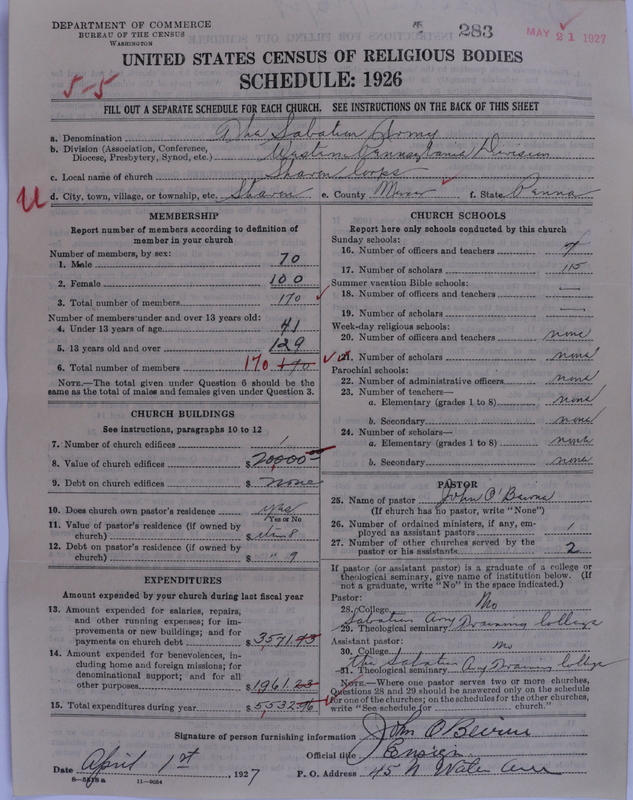 DEPARTMENT OF COMMERCE
BUREAU OF THE CENSUS
WASHINGTON
283
MAY 21 1927
UNITED STATES CENSUS OF RELIGIOUS BODIES
SCHEDULE: 1926
5-5
FILL OUT A SEPARATE SCHEDULE FOR EACH CHURCH. SEE INSTRUCTIONS ON THE BACK OF THIS SHEET
a. Denomination The Salvation Army
b. Division (Association, Conference, Diocese, Presbytery, Synod, etc.) Western Pennsylvania Division
c. Local name of church Sharon Corps
U
d. City, town, village, or township, etc. Sharon e. County Mercer f. State Penna
MEMBERSHIP
Report number of members according to definition of
member in your church
Number of members, by sex:
1. Male 70
2. Female 100
3. Total number of members 170
Number of members under and over 13 years old:
4. Under 13 years of age 41
5. 13 years old and over 129
6. Total number of members 170 170
NOTE.—The total given under Question 6 should be
same as the total of males and females given under Question 3.
CHURCH BUILDINGS
See instructions, paragraphs 10 to 12
7. Number of church edifices 1
8. Value of church edifices $20,000
9. Debt on church edifices $ none
10. Does church own pastor's residence yes
Yes or No
11. Value of pastor's residence (if owned by
church) $ item 8
12. Debt on pastor's residence (if owned by
church) $ " 9
EXPENDITURES
Amount expended by your church during last fiscal year
13. Amount expended for salaries, repairs,
and other running expenses; for im-
provements or new buildings; and for
payments on church debt $3571.43
14. Amount expended for benevolences, in-
cluding home and foreign missions; for
denominational support; and for all
other purposes $1961.23
15. Total expenditures during year $5532
CHURCH SCHOOLS
Report here only schools conducted by this church
Sunday schools:
16. Number of officers and teachers 7
17. Number of scholars 115
Summer vacation Bible schools:
18. Number of officers and teachers —
19. Number of scholars —
Week-day religious schools:
20. Number of officers and teachers none
21. Number of scholars none
Parochial schools:
22. Number of administrative officers none
23. Number of teachers—
a. Elementary (grades 1 to 8) none
b. Secondary none
24. Number of scholars—
a. Elementary (grades 1 to 8) none
b. Secondary none
PASTOR
25. Name of pastor John O'Beirne
(If church has no pastor, write "None")
26. Number of ordained ministers, if any, em-
ployed as assistant pastors 1
27. Number of other churches served by the
pastor or his assistants 2
If pastor (or assistant pastor) is a graduate of a college or
theological seminary, give name of institution below. (If
not a graduate, write "No" in the space indicated.)
Pastor:
28. College No
29. Theological seminary Salvation Army Training College
Assistant pastor:
30. College No
31. Theological seminary The Salvation Army Training College
NOTE.—Where one pastor serves two or more churches,
Questions 28 and 29 should be answered only on the schedule
for one of the churches; on the schedules for the other churches,
write "See schedule for church."
Signature of person furnishing information John O'Beirne
Official title Ensign
Date April 1st, 1927 P. O. Address 45 N Water Ave
8-5518 a 11-9054